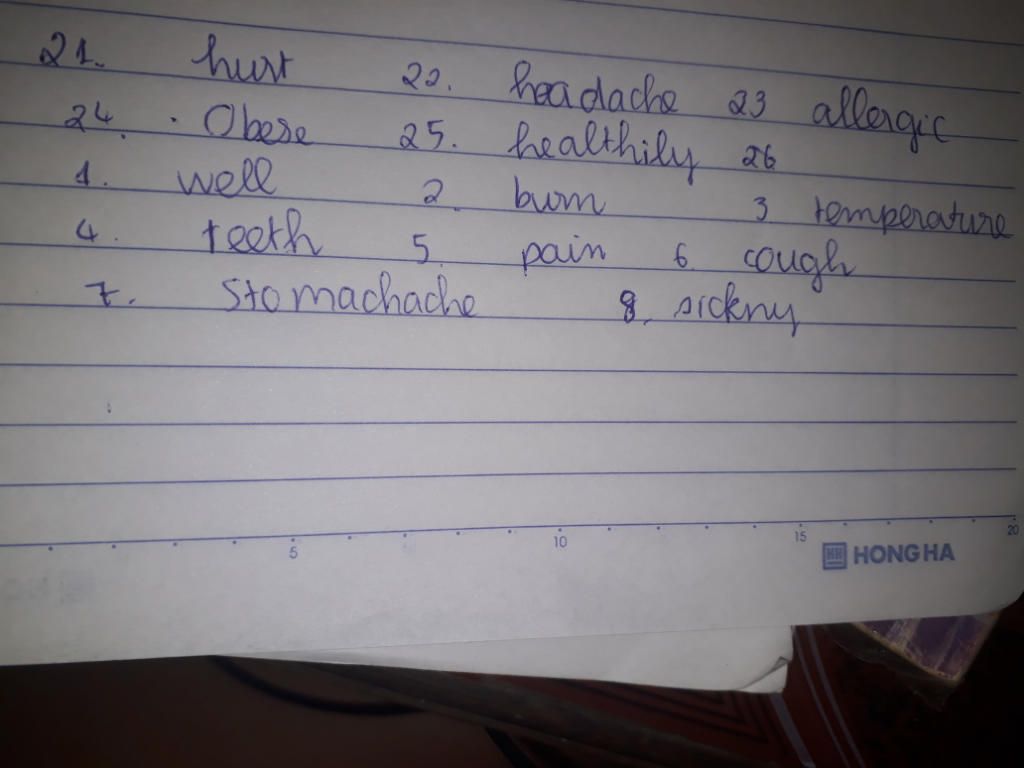 21. hurt 22. headache 23 allergic
24. Obese 25. healthily 26
1. well 2. burn 3 temperature
4. teeth 5. pain 6. cough
7. Stomachache 8. sickny
5 10 15 20
HH HONG HA